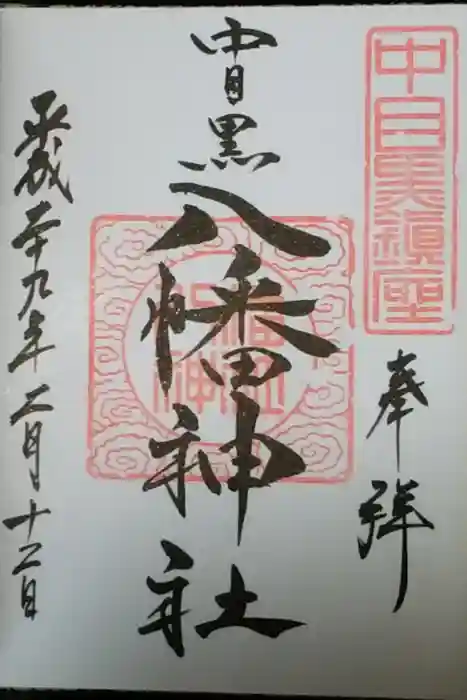 中目黒鎮座
奉拝
中目黒八幡神社
平成二十九年二月十二日